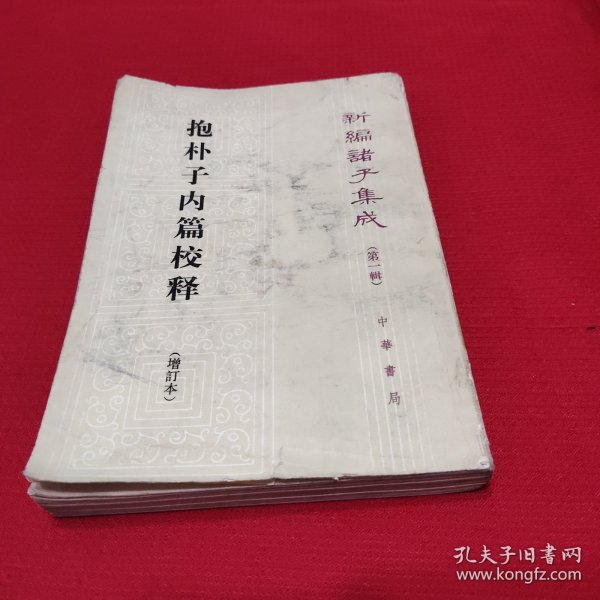 新編諸子集成
(第一輯)
中華書局
抱朴子内篇校释
(增訂本)
孔夫子旧书网
www.kongfz.com